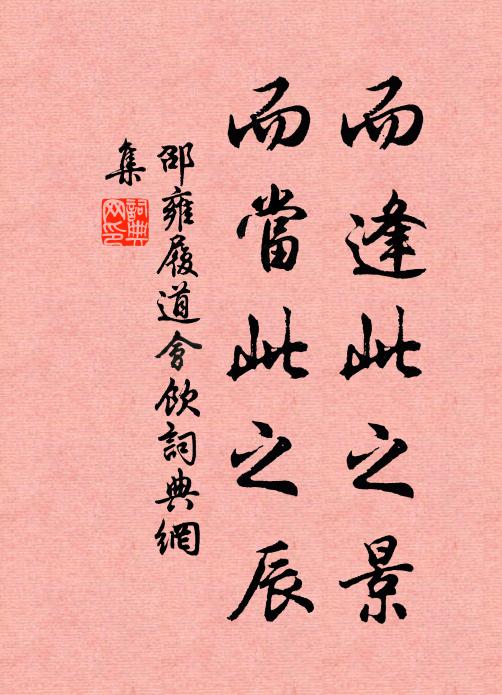 而逢此之景
而當此之辰
邵雍履道會飲詞典網
集
詞典
网印